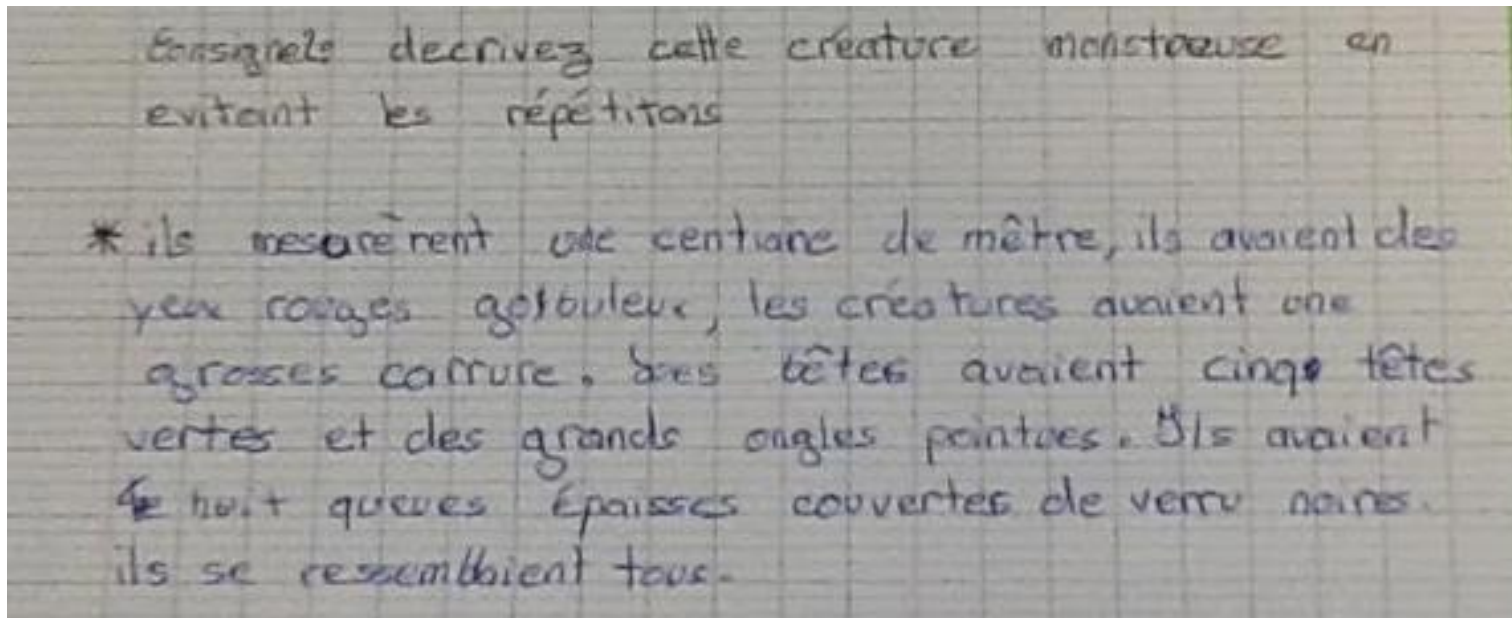 Consignels decrivez cette créature monstreuse en
evitant les répétitons
* ils mesurèrent une centiane de mêtre, ils avaient des
yeux rouges, les créatures avaient une
grosses carrure. bêtes avaient cinq têtes
vertes et des grands ongles pointues. Ils avaient
huit queues épaisses couvertes de verru noires.
ils se ressemblaient tous.